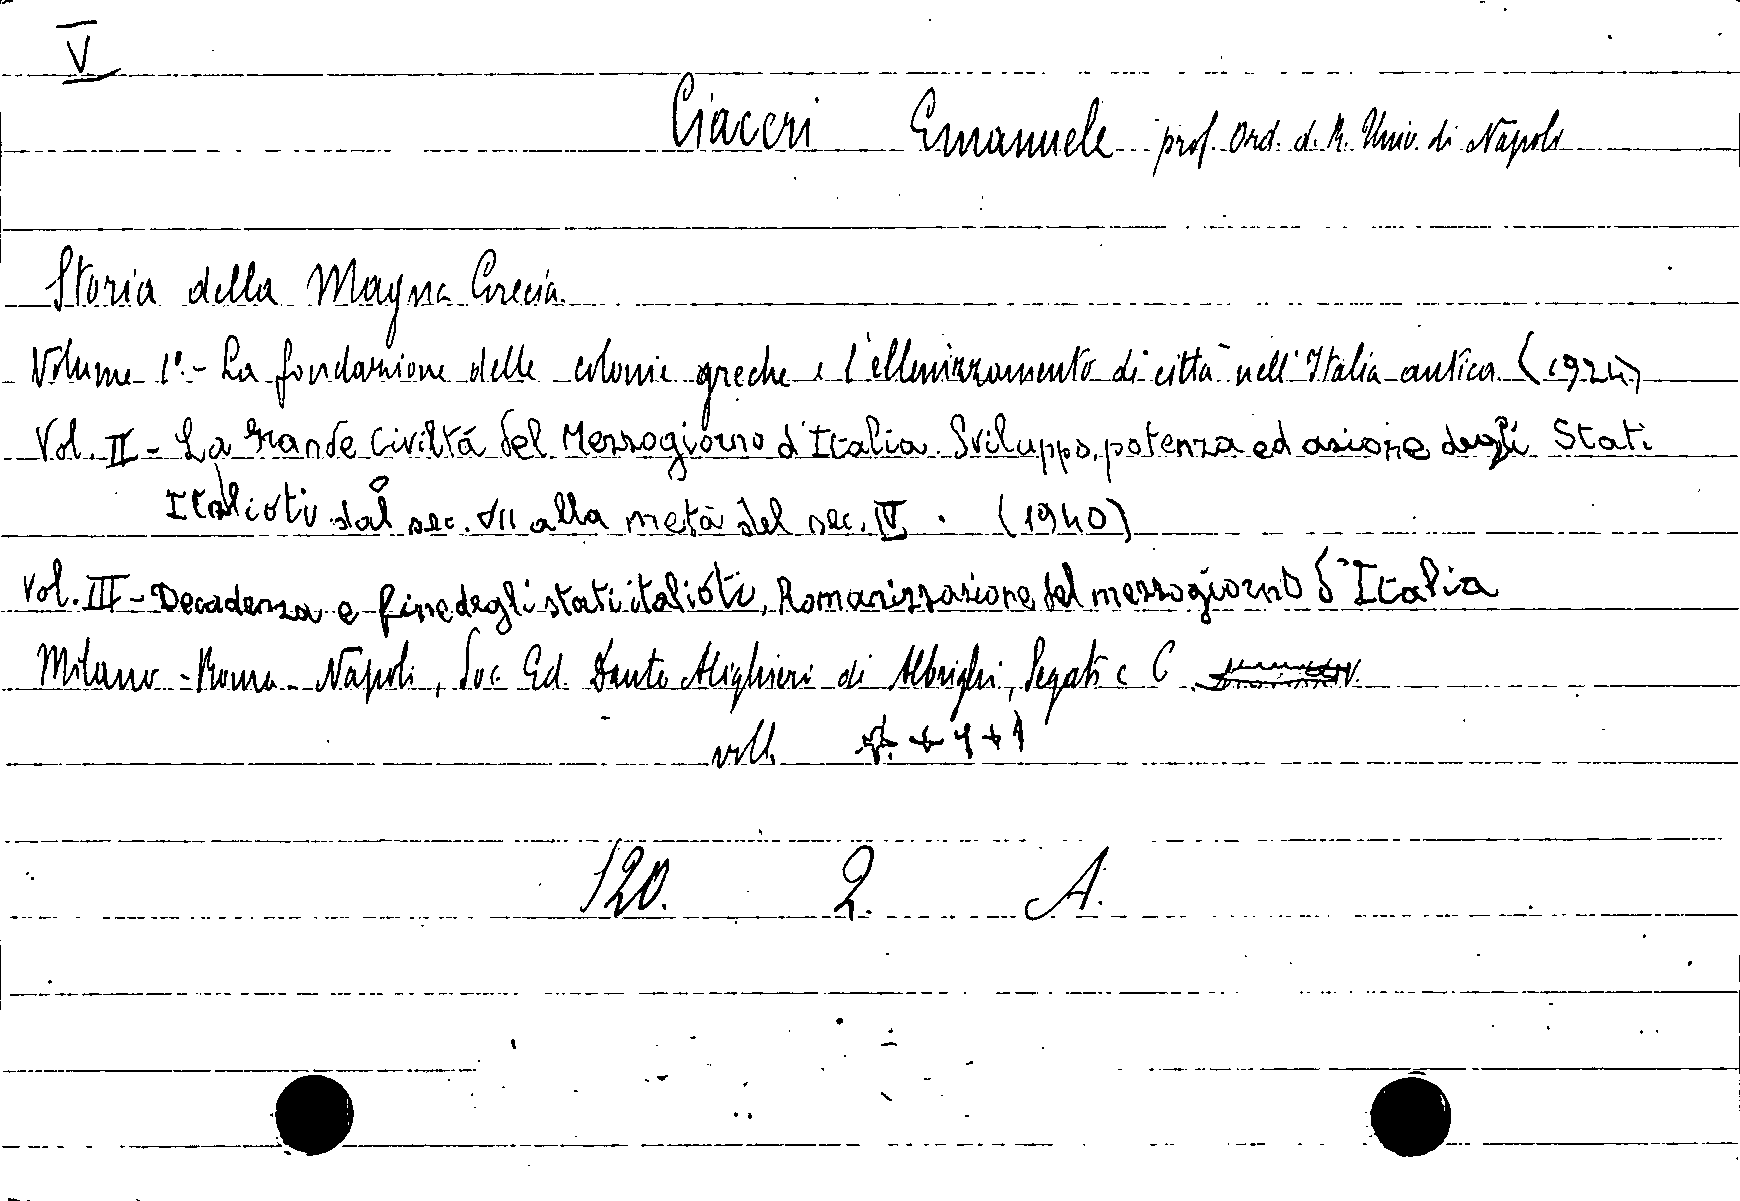 V
Ciaceri Emanuele prof. Ord. d. R. Univ. di Napoli
Storia della Magna Grecia
Volume I°.- La fondazione delle colonie greche e l'ellenizzamento di città nell'Italia antica (1924)
Vol. II - La grande Civiltá del Mezzogiorno d'Italia. Sviluppo, potenza ed azione degli Stati
Italioti dal sec. VII alla metà del sec. IV. (1940)
Vol. III - Decadenza e fine degli stati italioti, Romanizzazione del mezzogiorno d'Italia
Milano - Roma - Napoli, Soc. Ed. Dante Alighieri di Albrighi, Segati e C.
voll. + 1 + 1
120. 2. A.